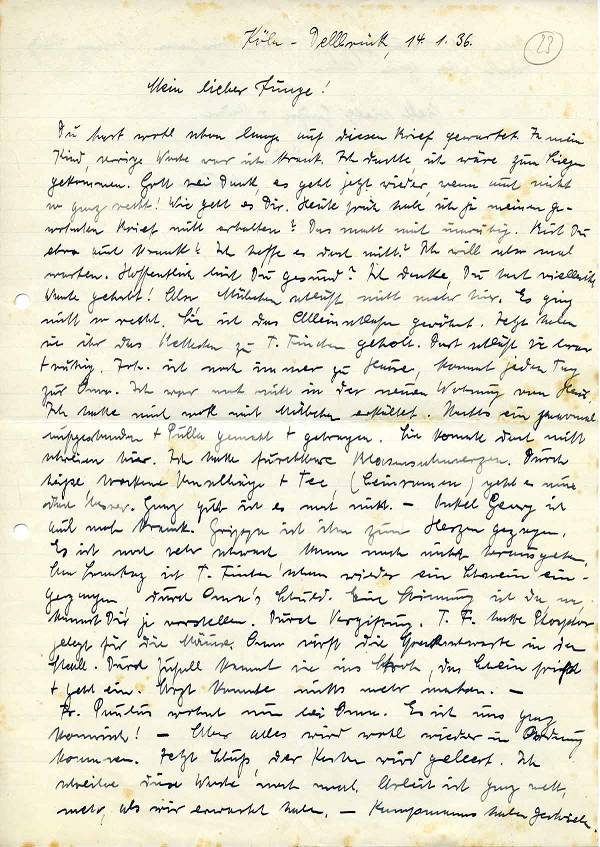 Köln - Dellbrück, 14.1.36.
23
Mein lieber Junge!
Du hast wohl schon lange auf diesen Brief gewartet. Ja mein
Kind, vorige Woche war ich krank. Ich dachte ich wäre zum Liegen
gekommen. Gott sei Dank, es geht jetzt wieder, wenn auch nicht
so ganz recht! Wie geht es Dir. Heute früh habe ich ja meinen ge-
wohnten Brief nicht erhalten? Das macht mich unruhig. Bist Du
etwa auch krank? Ich hoffe es doch nicht? Ich will aber mal
warten. Hoffentlich bist Du gesund? Ich denke, Du hast vielleicht
Wache gehabt! Also Mütchen schläft nicht mehr hier. Es ging
nicht so recht. Sie ist das Alleinschlafen gewöhnt. Jetzt haben
sie ihr das Bettchen zu T. Finchen geholt. Dort schläft sie
+ ruhig. Joh. ist noch immer zu Hause, kommt jeden Tag
zur Oma. Ich war noch nicht in der neuen Wohnung von
Ich hatte mich noch mit Mütchen erkältet. Nachts ein paarmal
aufgestanden + Pulla gemacht + getragen. Sie konnte doch nicht
schreien hier. Ich hatte furchtbare Blasenschmerzen. Durch
heiße trockene Umschläge + Tee, (Leinsamen) geht es nun
etwas besser. Ganz gut ist es noch nicht. - Onkel Georg ist
auch noch krank. Grippe ist ihm zum Herzen gezogen.
Es ist noch sehr schwach kann noch nicht herausgehen.
Am Sonntag ist T. Finchen schon wieder ein Schwein ein-
gegangen, durch Oma's Schuld. Eine Stimmung ist da, na,
kannst Dir ja vorstellen. Durch Vergiftung. T. F. hatte Phosphor
gelegt für die Mäuse. Oma wirft die Speckschwarte in den
Stall. Durch Zufall kommt sie ins Stroh, das Schwein frißt
+ geht ein. Arzt konnte nichts mehr machen. -
Fr. Paulus wohnt nun bei Oma. Es ist uns ganz
komisch! - Aber alles wird wohl wieder in Ordnung
kommen. Jetzt Schluß, der Kasten wird geleert. Ich
schreibe diese Woche noch mal. Arbeit ist ganz nett,
mehr, als wir erwartet haben. - Kampmanns haben geschrieben.